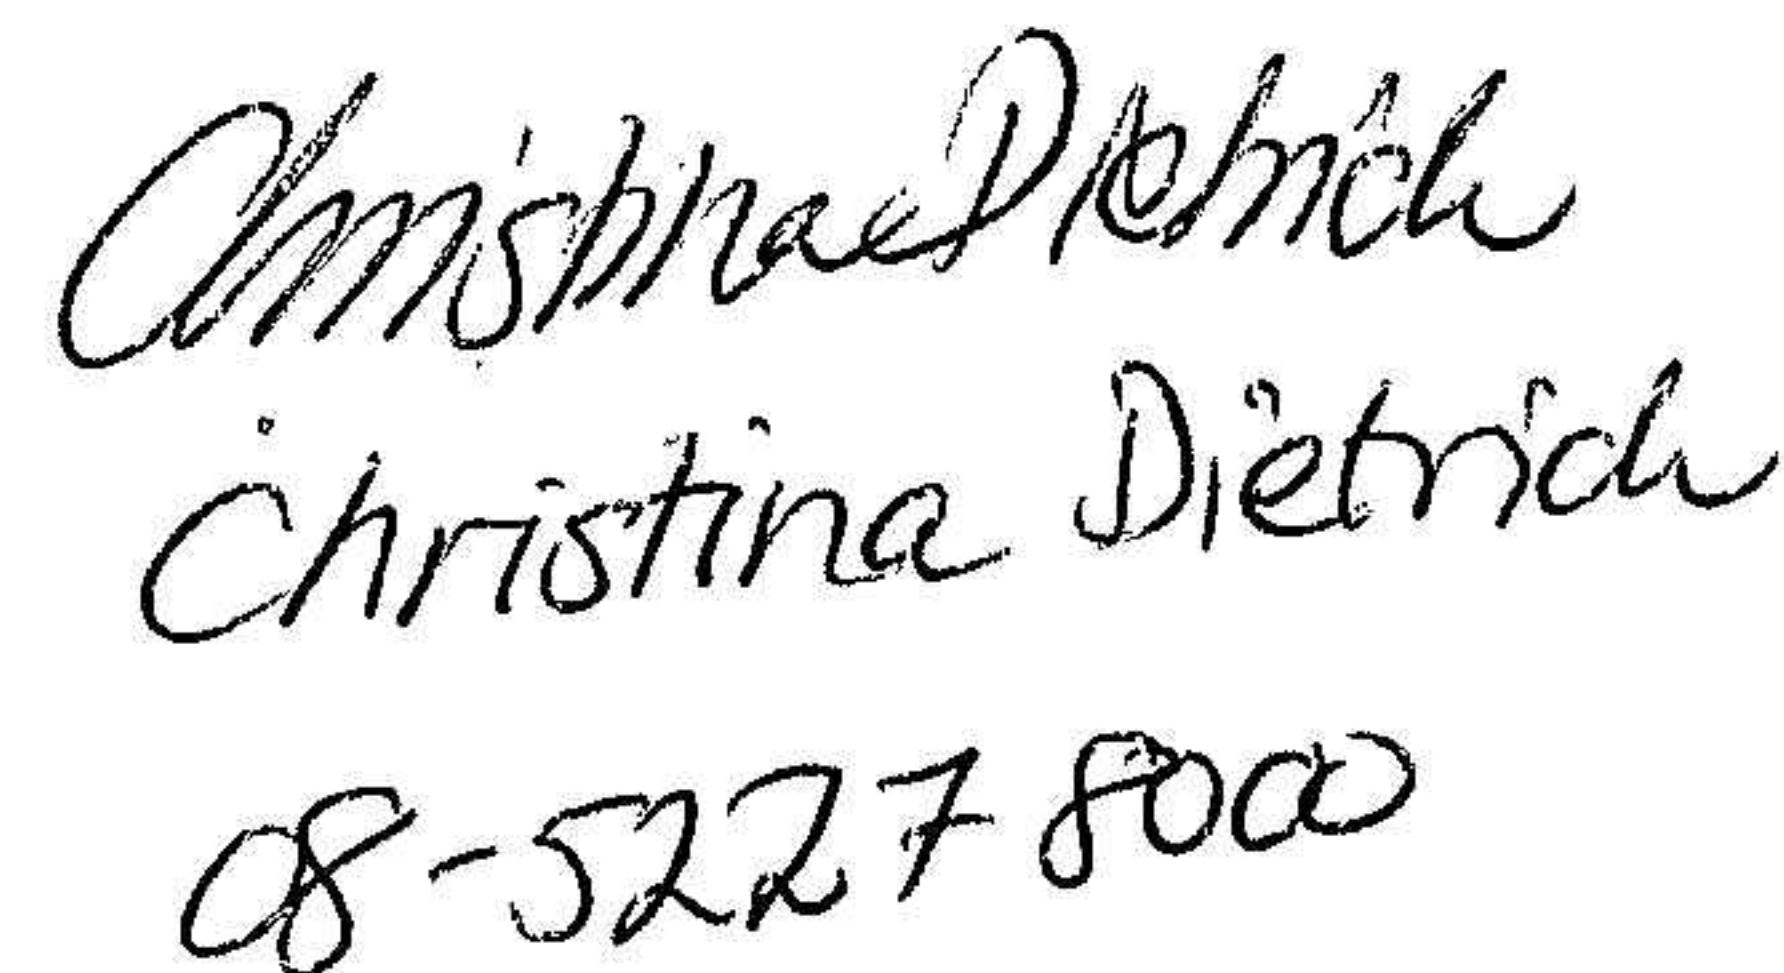 Christina Dietrich
Christina Dietrich
08-5227 8000